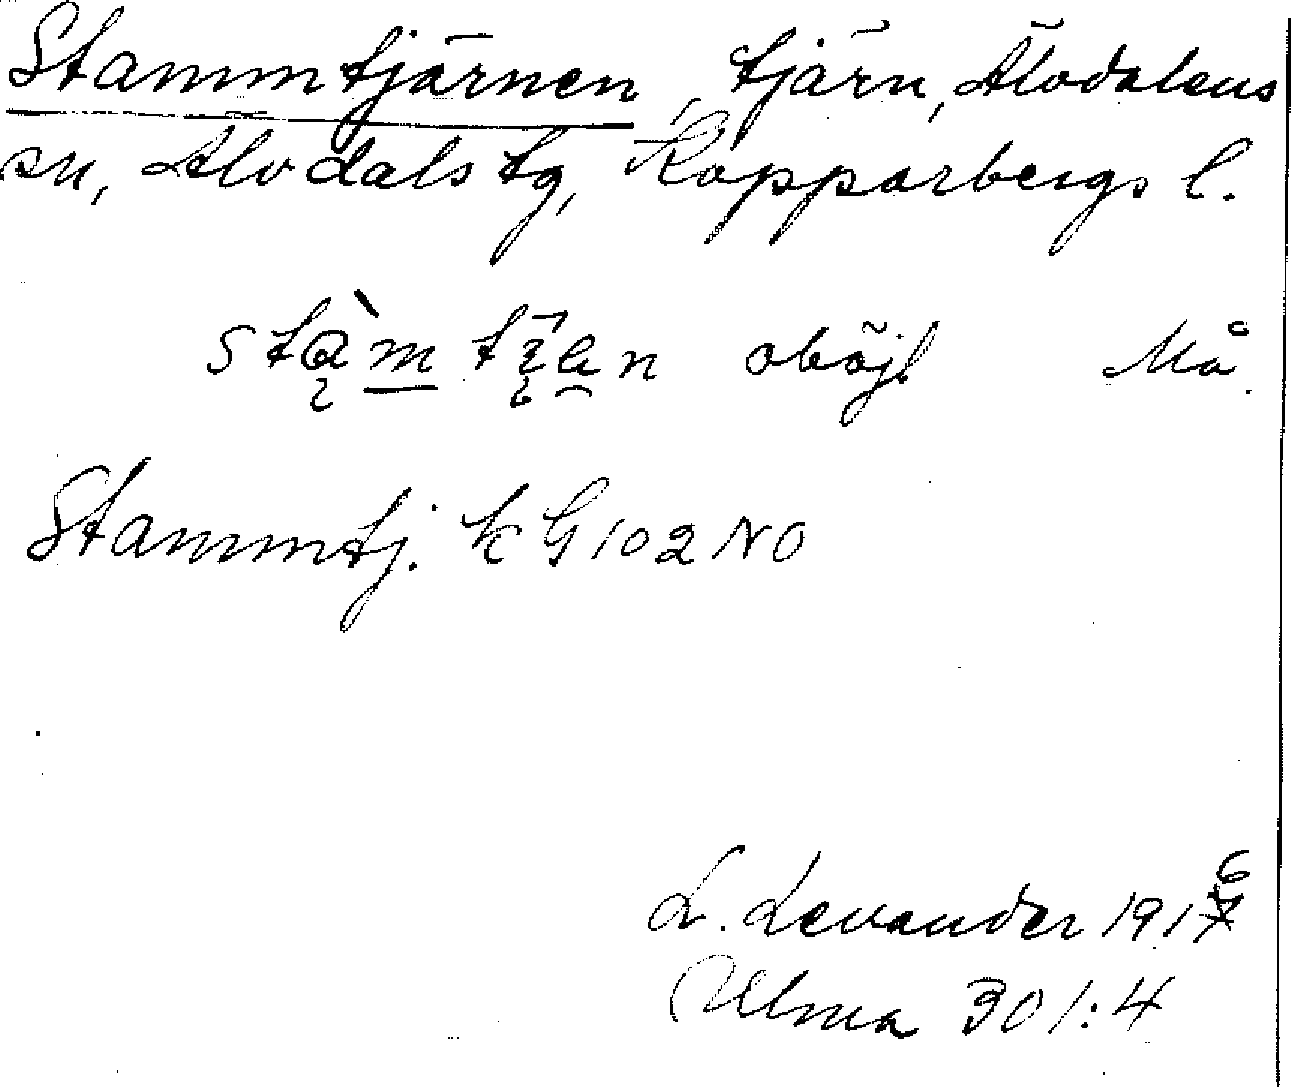 Stammtjärnen, tjärn, Älvdalens
sn, Älvdals tg, Kopparbergs l.
oböjl Må.
Stammtj. k G 102 NO
L. Levander 1916
Ulma 301:4